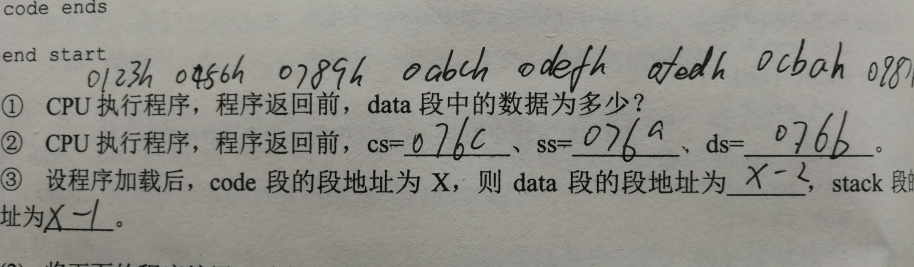 code ends
end start
0123h 0456h 0789h 0abch 0defh 0fedh 0cbah 0987
① CPU 执行程序，程序返回前，data 段中的数据为多少？
② CPU 执行程序，程序返回前，cs=076c、ss=076a、ds=076b。
③ 设程序加载后，code 段的段地址为 X，则 data 段的段地址为X-2，stack 段
址为X-1。